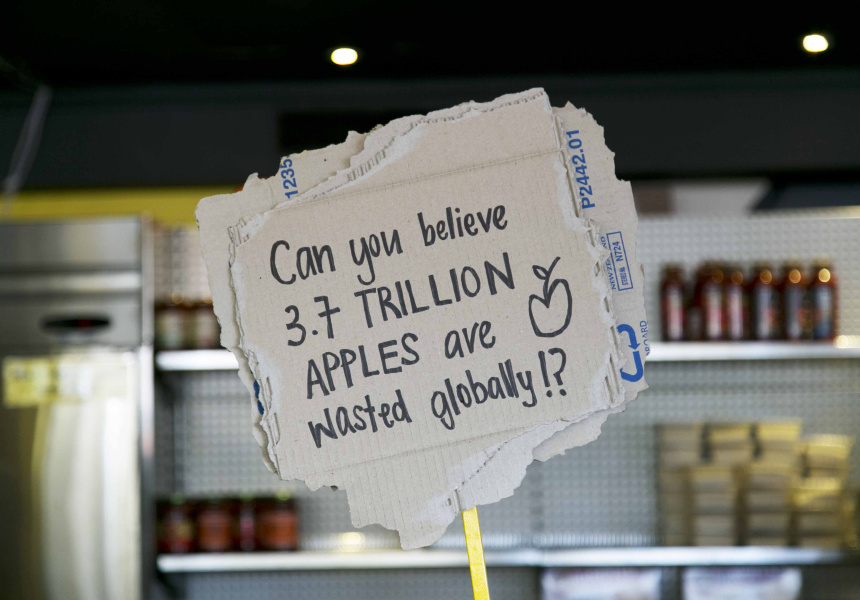 Can you believe
3.7 TRILLION
APPLES are
wasted globally!?
1235
P2442.01